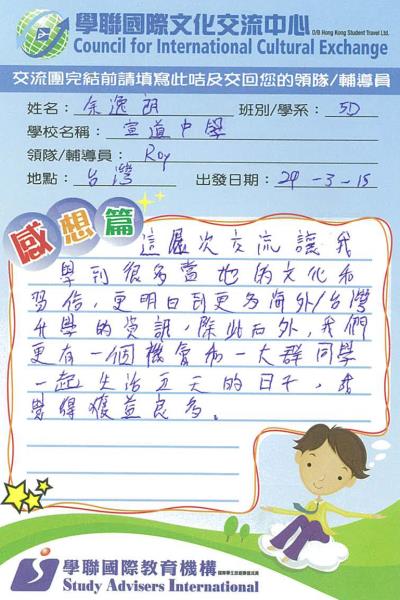 學聯國際文化交流中心 D/B Hong Kong Student Travel Ltd.
Council for International Cultural Exchange
交流團完結前請填寫此咭及交回您的領隊/輔導員
姓名：余逸朗 班別/學系：5D
學校名稱：宣道中學
領隊/輔導員：Roy
地點：台灣 出發日期：29-3-15
感想篇
這次交流讓我
學到很多當地的文化和
習俗，更明白到更多海外/台灣
升學的資訊，除此而外，我們
更有一個機會和一大群同學
一起生活五天的日子，我
覺得獲益良多。
學聯國際教育機構
Study Advisers International